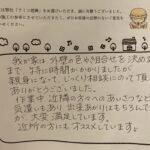 我が家は、外壁の色や組合せを決める
まで、特に時間がかかりましたが
親身になって、じっくり相談にのって頂き
ありがとうございました。
作業中、近隣の方々へのあいさつなど
気遣いもあり、出来あがりはもちろんです
が、大変満足しています。
近所の方にもオススメしています♪